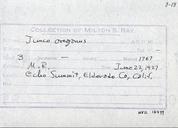 COLLECTION OF MILTON S. RAY
Junco oreganus
3 — 1767
M.R. June 22, 1927
Echo Summit, Eldorado Co., Calif.